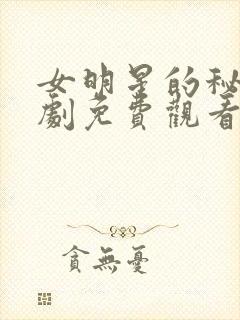 女明星的秘
劇免費觀看
貪無憂